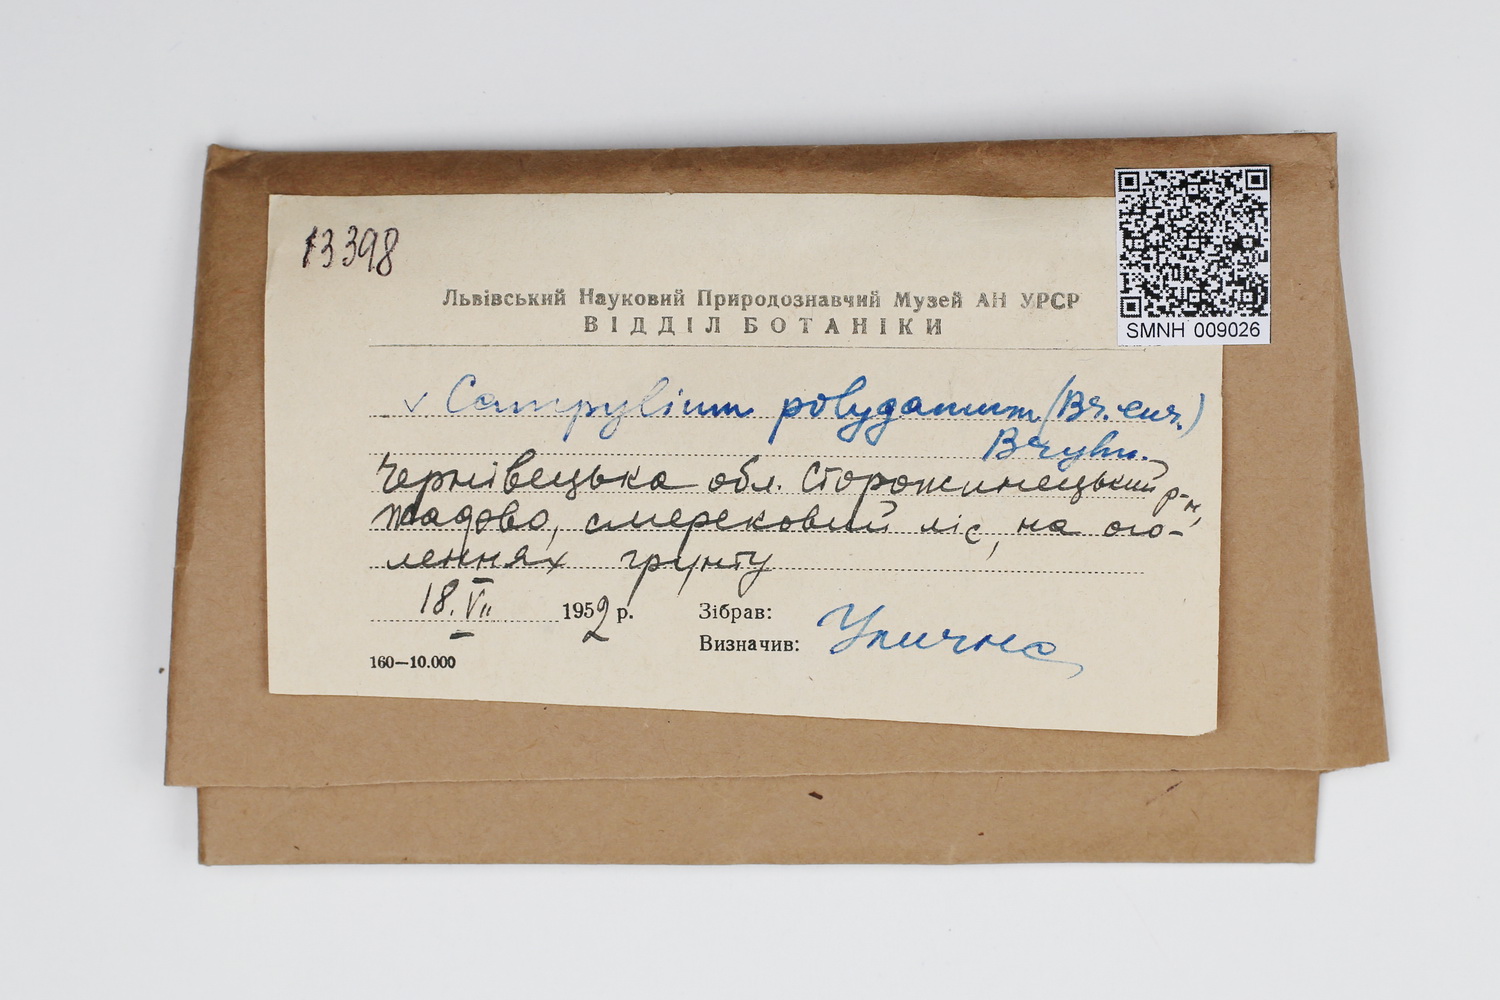 13398
Львівський Науковий Природознавчий Музей АН УРСР
ВІДДІЛ БОТАНІКИ
SMNH 009026
✓ Campylium polygamum (Br. eur.)
Bryhn.
Чернівецька обл. Сторожинецький р-н,
Жадово, смерековий ліс, на ого-
леннях грунту
18. VII 1952 р.
Зібрав:
Визначив: Улична
160—10.000